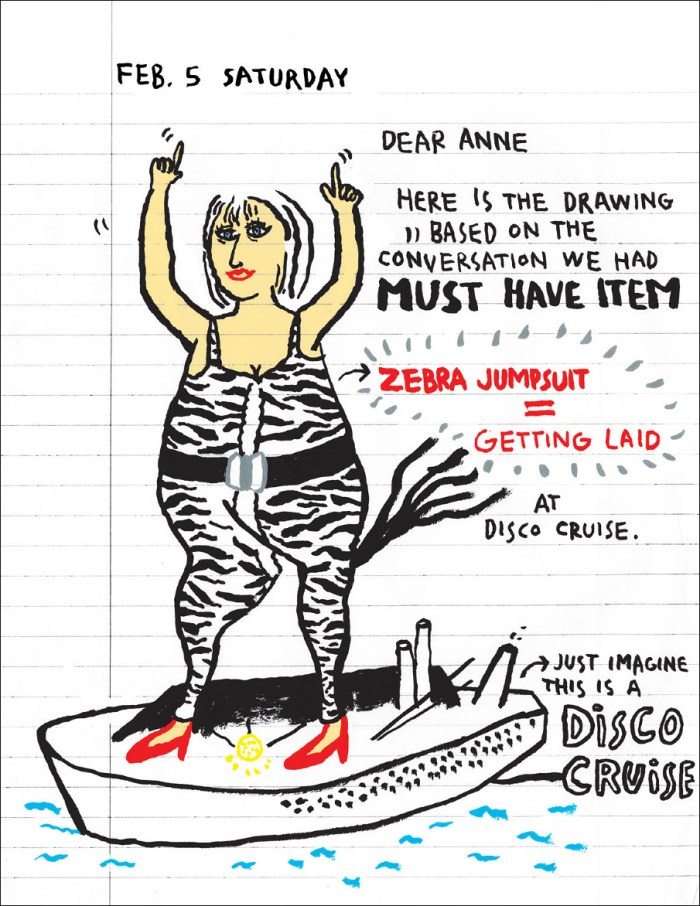 FEB. 5 SATURDAY
DEAR ANNE
HERE IS THE DRAWING
BASED ON THE
CONVERSATION WE HAD
MUST HAVE ITEM
ZEBRA JUMPSUIT
=
GETTING LAID
AT
DISCO CRUISE.
JUST IMAGINE
THIS IS A
DISCO
CRUISE